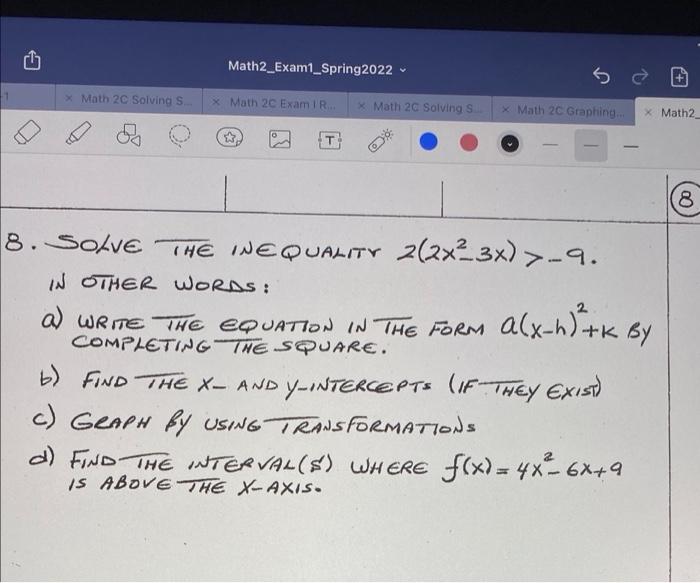 Math2_Exam1_Spring2022
-1
× Math 2C Solving S...
× Math 2C Exam I R...
× Math 2C Solving S...
× Math 2C Graphing...
× Math2_
T
8
8. SOLVE THE INEQUALITY 2(2x²-3x) > -9.
IN OTHER WORDS:
a) WRITE THE EQUATION IN THE FORM a(x-h)²+k BY
COMPLETING THE SQUARE.
b) FIND THE X- AND Y-INTERCEPTS (IF THEY EXIST)
c) GRAPH BY USING TRANSFORMATIONS
d) FIND THE INTERVAL(S) WHERE f(x) = 4x²-6x+9
IS ABOVE THE X-AXIS.